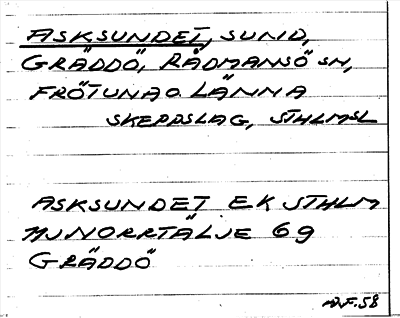 ASKSUNDET, SUND,
GRÄDDÖ, RÅDMANSÖ SN,
FRÖTUNA O. LÄNNA
SKEPPSLAG, STHLMSL
ASKSUNDET EK STHLM
NJ NORRTÄLJE 69
GRÄDDÖ
F. 58